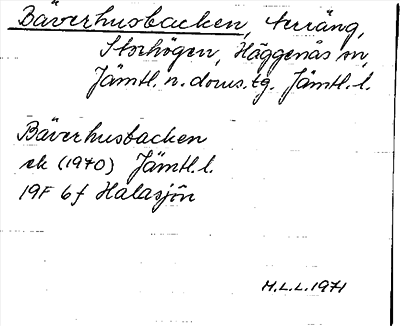 Bäverhusbacken, terräng,
Storhögen, Häggenås sn,
Jämtl. n. doms.tg. Jämtl. l.
Bäverhusbacken
ek (1970) Jämtl. l.
19F 6f Halasjön
H.L.L. 1971